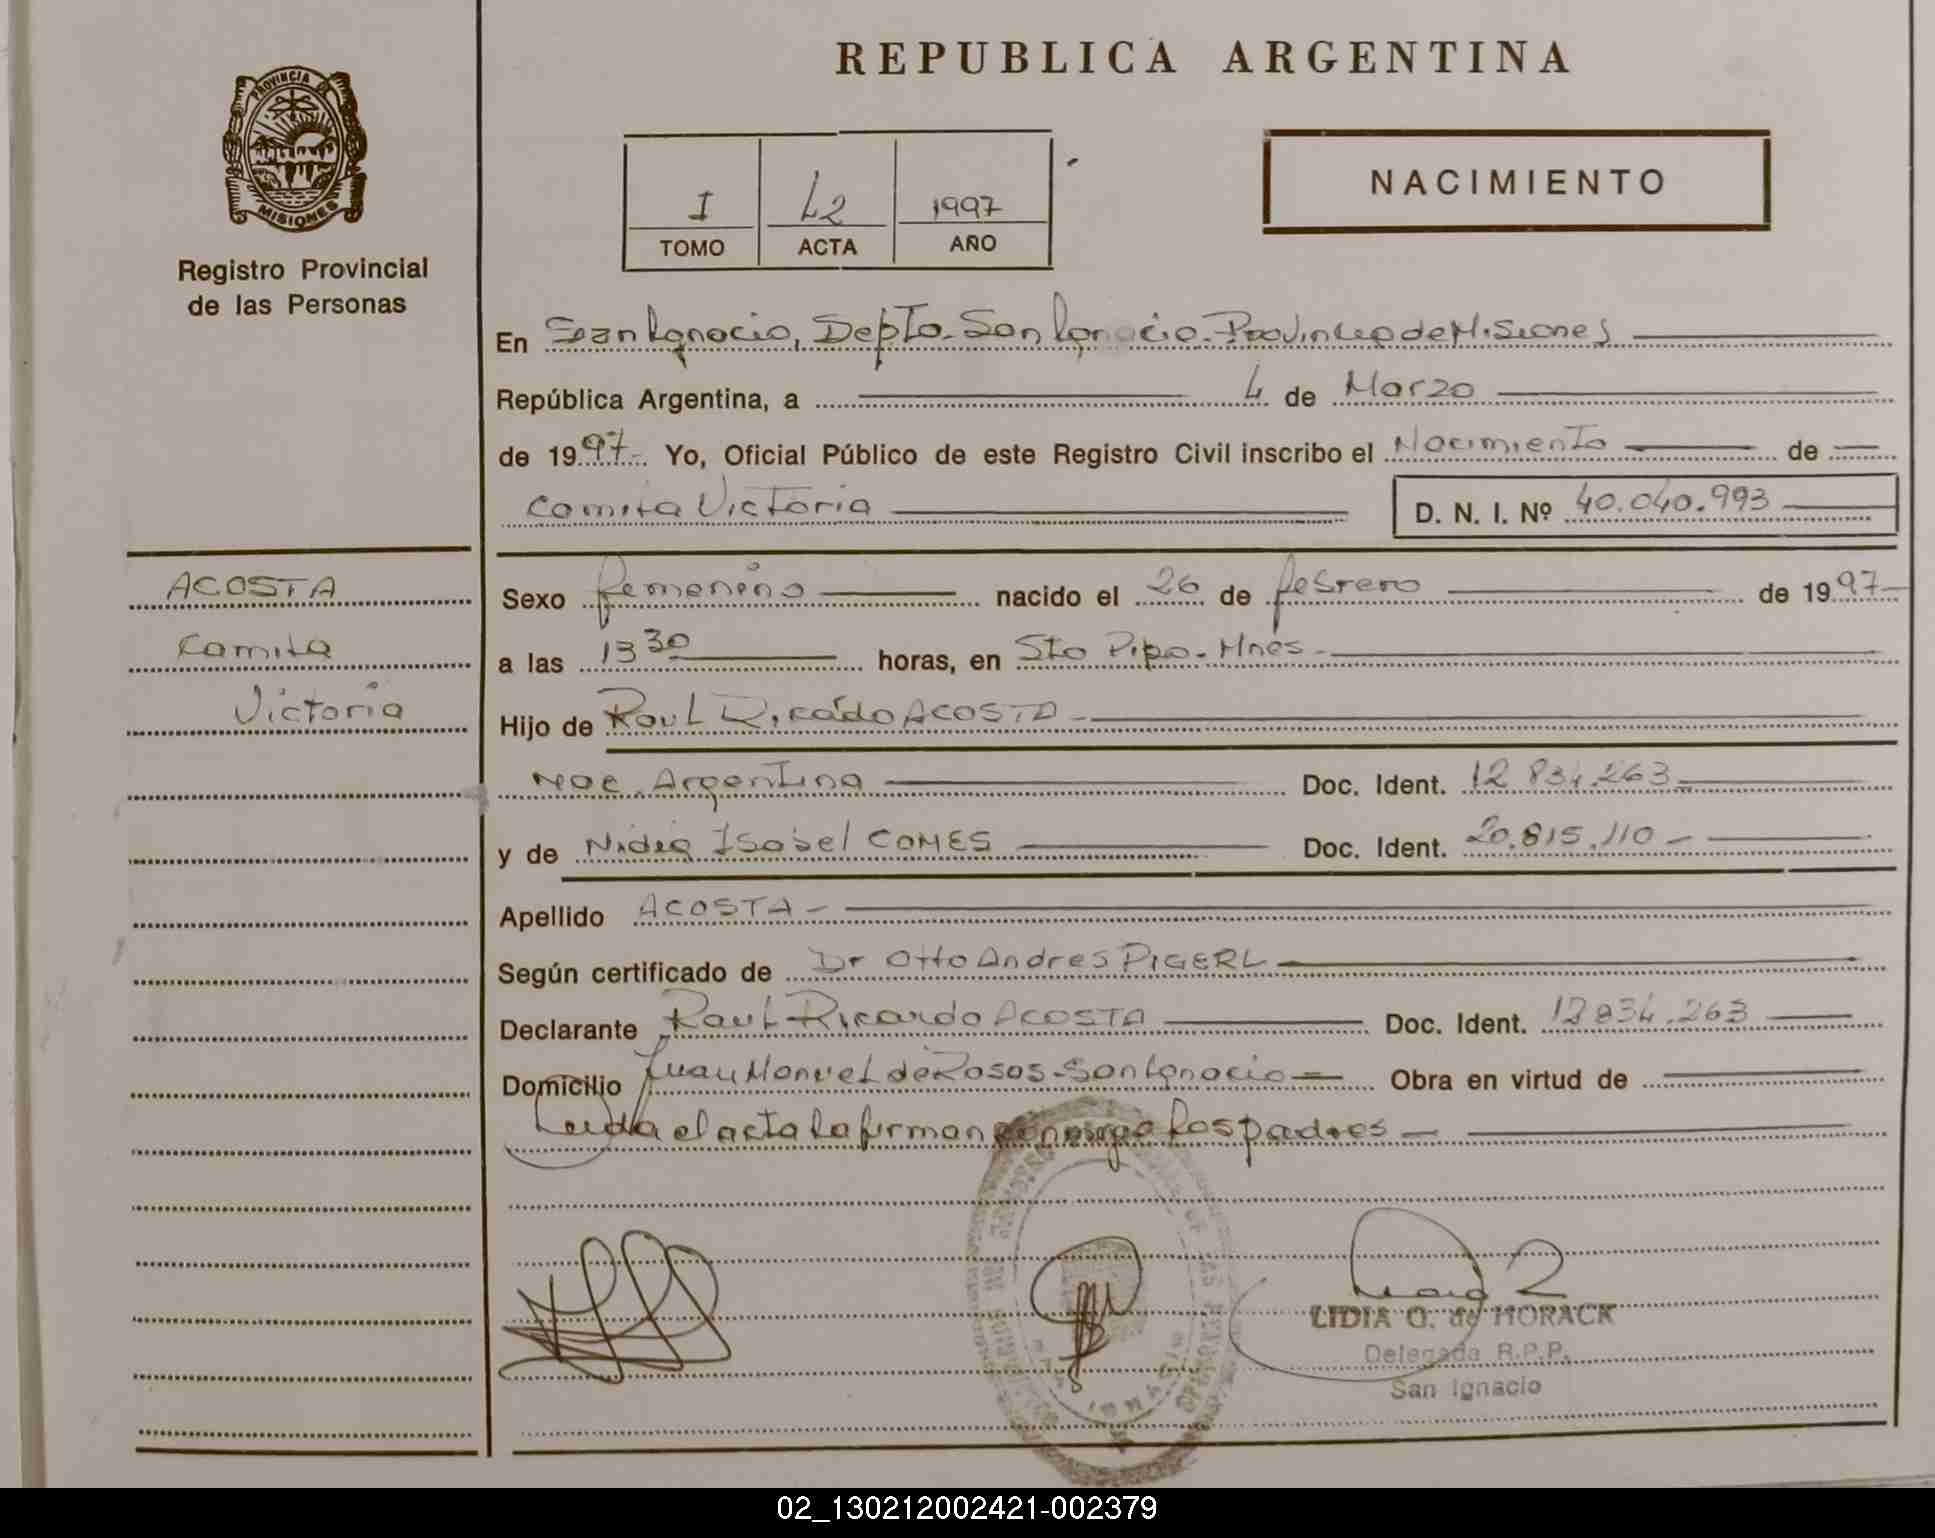 REPUBLICA ARGENTINA
PROVINCIA DE
MISIONES
Registro Provincial
de las Personas
I 42 1997
TOMO ACTA AÑO
NACIMIENTO
En San Ignacio, Depto. San Ignacio. Provincia de Misiones
República Argentina, a 4 de Marzo
de 1997.- Yo, Oficial Público de este Registro Civil inscribo el Nacimiento de
Camila Victoria D. N. I. Nº 40.040.993
ACOSTA
Camila
Victoria
Sexo femenino nacido el 26 de febrero de 1997-
a las 13 30 horas, en Sto Pipo. Mnes.
Hijo de Raul Ricardo ACOSTA-
Nac. Argentina Doc. Ident. 12.834.263
y de Nidia Isabel COMES Doc. Ident. 20.815.110-
Apellido ACOSTA-
Según certificado de Dr Otto Andres PIGERL
Declarante Raul Ricardo ACOSTA Doc. Ident. 12834.263
Domicilio Juan Manuel de Rosas-San Ignacio Obra en virtud de
Leida el acta la firman conmigo los padres-
LIDIA O. de HORACK
Delegada R.P.P.
San Ignacio
02_130212002421-002379